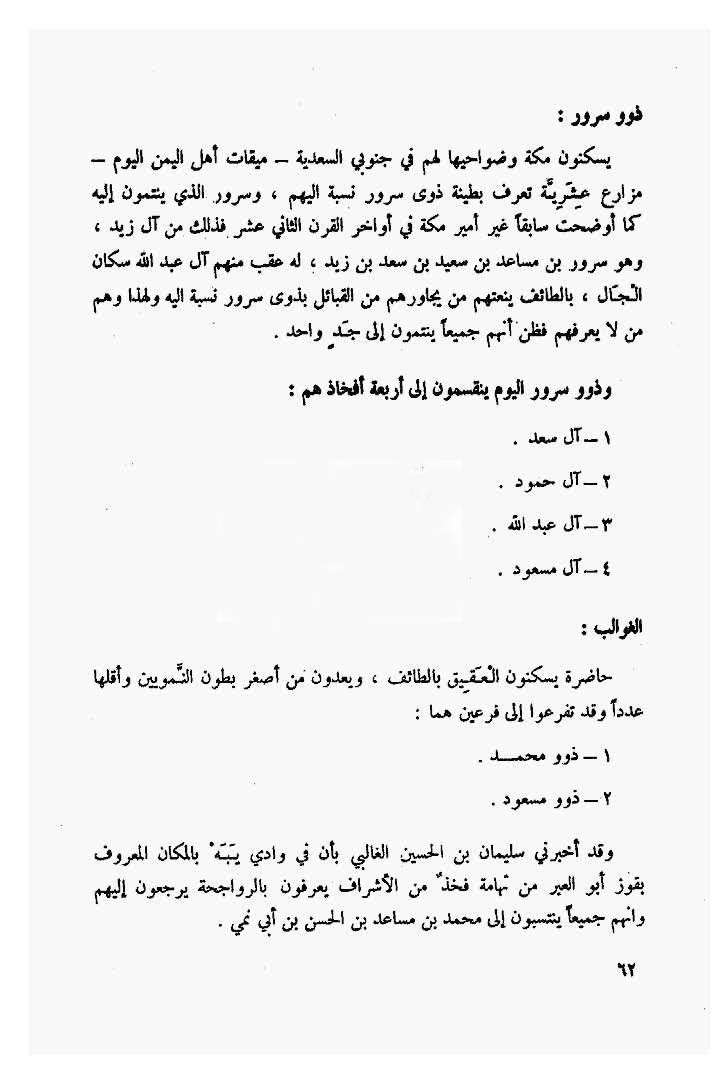 ذوو سرور :
يسكنون مكة وضواحيها لهم في جنوبي السعدية – ميقات أهل اليمن اليوم –
مزارع عثريّة تعرف بطينة ذوى سرور نسبة اليهم ، وسرور الذي ينتمون إليه
كما أوضحت سابقاً غير أمير مكة في أواخر القرن الثاني عشر فذلك من آل زيد ،
وهو سرور بن مساعد بن سعيد بن سعد بن زيد ، له عقب منهم آل عبد الله سكان
الجال ، بالطائف ينعتهم من يجاورهم من القبائل بذوى سرور نسبة اليه ولهذا وهم
من لا يعرفهم فظن أنهم جميعاً ينتمون إلى جَد واحد .
وذوو سرور اليوم ينقسمون إلى أربعة أفخاذ هم :
١ – آل سعد .
٢ – آل حمود .
٣ – آل عبد الله .
٤ – آل مسعود .
الغوالب :
حاضرة يسكنون الْعَقيق بالطائف ، ويعدون من أصغر بطون النَّمويين وأقلها
عدداً وقد تفرعوا إلى فرعين هما :
١ – ذوو محمد .
٢ – ذوو مسعود .
وقد أخبرني سليمان بن الحسين الغالبي بأن في وادي يَبَهْ بالمكان المعروف
بقوز أبو العير من تهامة فخذٌ من الأشراف يعرفون بالرواجحة يرجعون إليهم
وانهم جميعاً ينتسبون إلى محمد بن مساعد بن الحسن بن أبي نمي .
٦٢